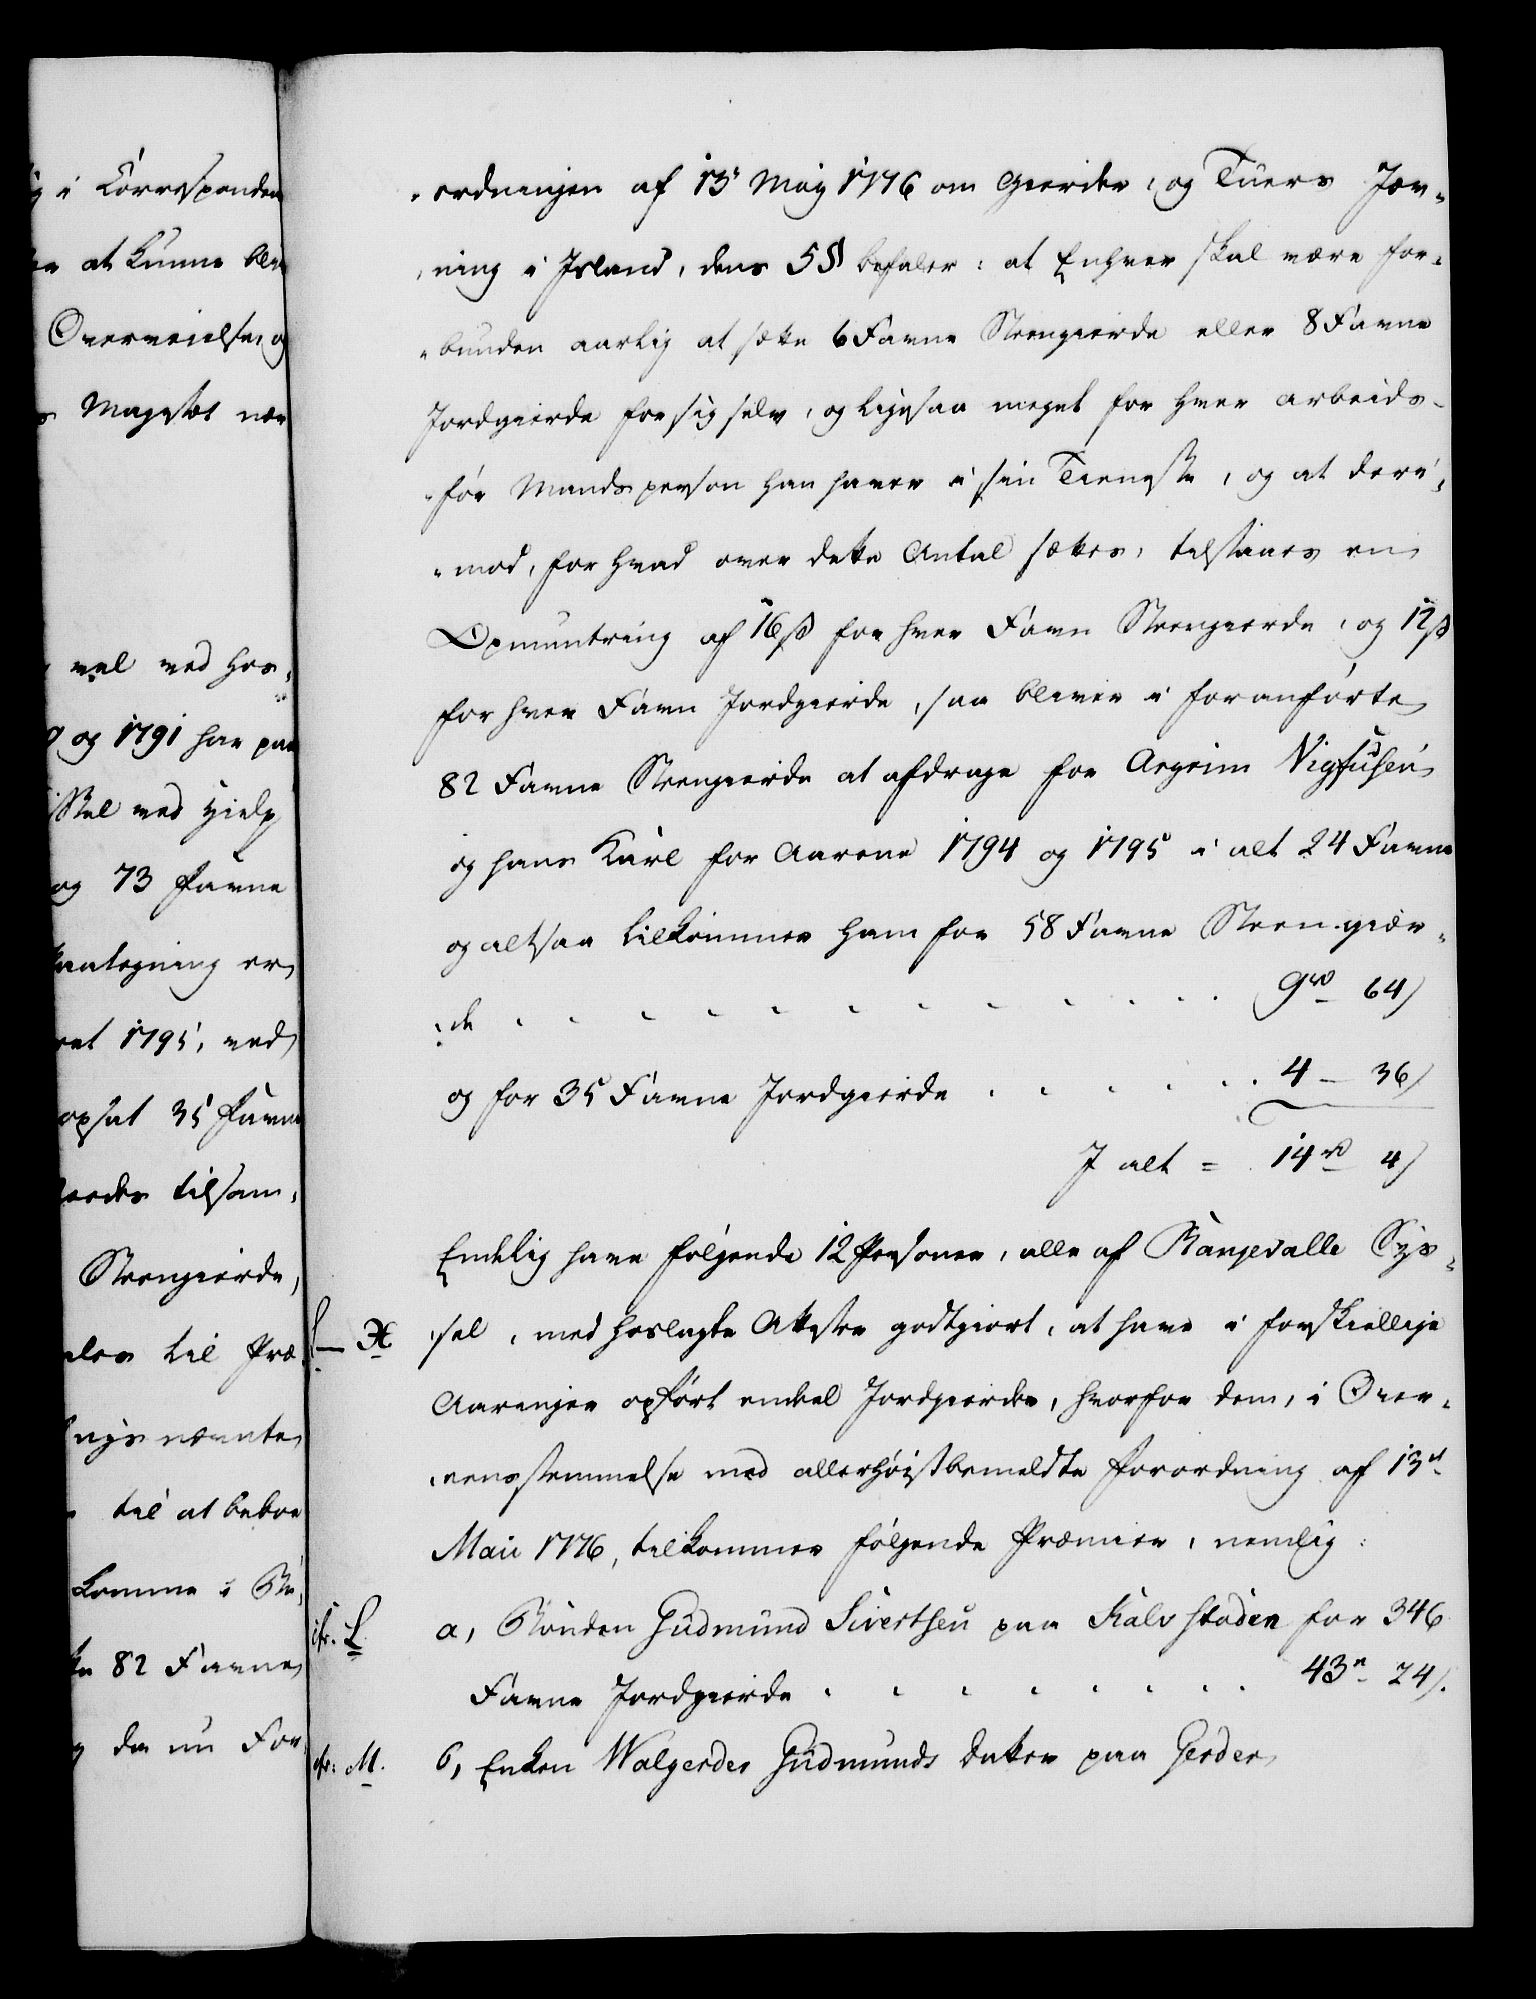 g i Correspondan
at kunne bliv
Overveielse og
Mayestæt nær
vel ved hos-
og 1791 har paa
ved Hielp
og 73 Favne
antegning er
1795, ved
opsat 35 Favne
tilsam-
Steengierde,
til Præ-
nævnte
til at beboe
komme i
82 Favne
da nu For-
-ordningen af 13 May 1776 om Gierder, og Tuers Jæv-
-ning i Island, dens 5 § befaler: at Enhver skal være for-
-bunden aarlig at sætte 6 Favne Steengierde eller 8 Favne
Jordgierde for sig selv, og ligesaa meget for hver arbeids-
-før Mands person han haver i sin Tieneste, og at deri-
-mod, for hvad over dette Antal sættes, tilstaaes en
Opmuntring af 16 ß for hver Favn Steengierde, og 12 ß
for hver Favn Jordgierde, saa bliver i foranførte
82 Favne Steengierde at afdrage for Argrim Vigfusen
og hans Karl for Aarene 1794 og 1795 i alt 24 Favne
og altsaa tilkommer ham for 58 Favne Steengier-
-de . . . . . . . . . . 9 rd 64 ß
og for 35 Favne Jordgierde . . . . . 4 - 36 ß
I alt = 14 rd 4 ß
Endelig have følgende 12 Personer, alle af Rangevalle Sys-
L — X -sel, med hoslagte Attester godtgiort, at have i forskiellige
Aaringer opført enkel Jordgierder, hvorfor dem, i Over-
-eensstemmelse med allerhøistbemeldte Forordning af 13de
Maii 1776, tilkommer følgende Præmier, nemlig:
cfr. L a, Bonden Gudmund Sivertsen paa Kalvstøden for 346
Favne Jordgierde . . . . . . . 43 rd 24 ß.
cfr: M. b, Enken Walgerder Gudmunds Datter paa Gerder